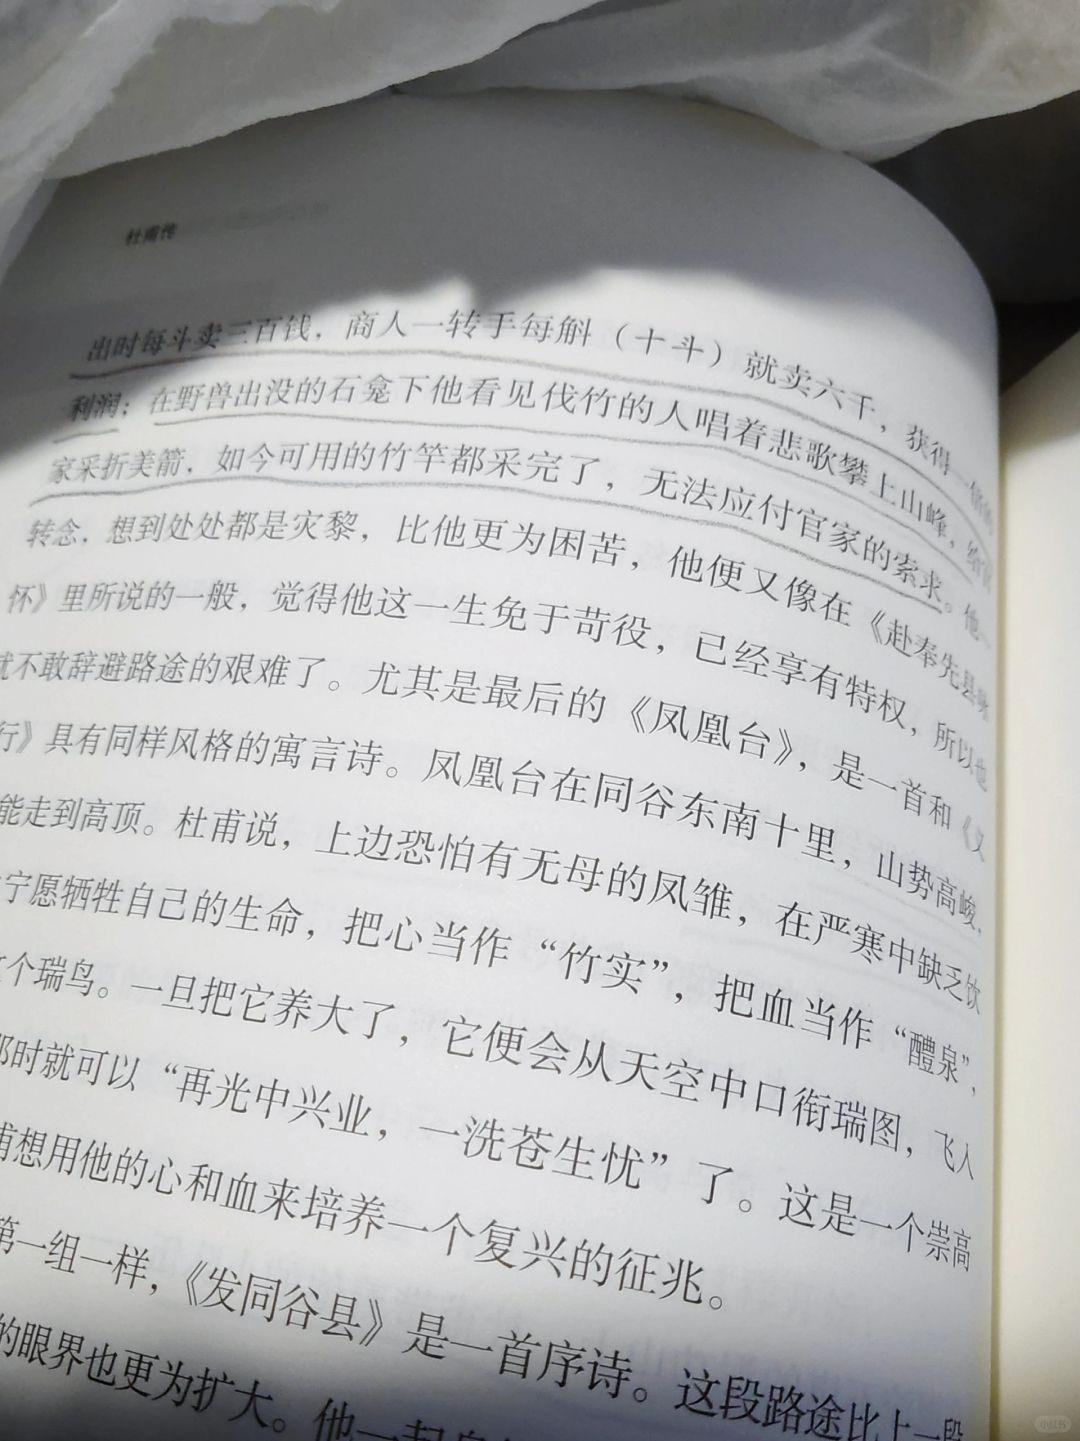 杜甫传
出时每斗卖三百钱，商人一转手每斛（十斗）就卖六千，获得一倍的
利润；在野兽出没的石龛下他看见伐竹的人唱着悲歌攀上山峰，给官
家采折美箭，如今可用的竹竿都采完了，无法应付官家的索求。他一
转念，想到处处都是灾黎，比他更为困苦，他便又像在《赴奉先县咏
怀》里所说的一般，觉得他这一生免于苛役，已经享有特权，所以也
就不敢辞避路途的艰难了。尤其是最后的《凤凰台》，是一首和《义
行》具有同样风格的寓言诗。凤凰台在同谷东南十里，山势高峻，
能走到高顶。杜甫说，上边恐怕有无母的凤雏，在严寒中缺乏饮
宁愿牺牲自己的生命，把心当作“竹实”，把血当作“醴泉”，
个瑞鸟。一旦把它养大了，它便会从天空中口衔瑞图，飞入
那时就可以“再光中兴业，一洗苍生忧”了。这是一个崇高
甫想用他的心和血来培养一个复兴的征兆。
第一组一样，《发同谷县》是一首序诗。这段路途比上一段
的眼界也更为扩大。他一起
小红书